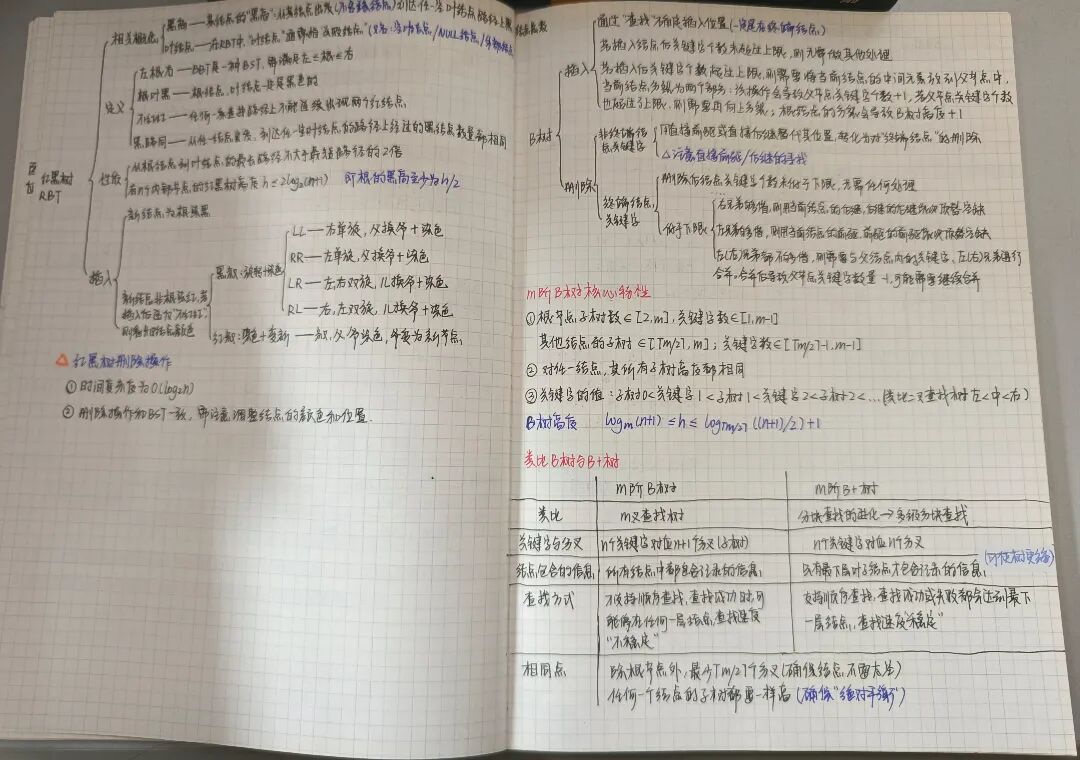 相关概念
黑高——某结点的“黑高”:从该结点出发(不含该结点)到达任一空叶结点路径上黑结点总数
叶结点——在RBT中,“叶结点”通常指
定义
左根右——RBT是一种BST,需满足左≤根≤右
根叶黑——根结点,叶结点一定是黑色的
不红红——任何一条查找路径上不能连续出现两个红结点
黑路同——从任一结点出发,到达任一空叶结点的路径上经过的黑结点数量都相同
红黑树
RBT
性质
从根结点到叶结点的最长路径不大于最短路径的2倍
有n个内部节点的红黑树高度 h≤2log₂(n+1) 即根的黑高至少为h/2
插入
新结点为根染黑
新结点非根染红,若
插入后还为“不红红”
则看叔结点颜色
黑叔:旋转+染色
LL——右单旋,父换爷+染色
RR——左单旋,父换爷+染色
LR——左,右双旋,儿换爷+染色
RL——右,左双旋,儿换爷+染色
红叔:染色+变新——叔,父,爷染色,爷变为新节点
△ 红黑树删除操作
① 时间复杂度为O(log₂n)
② 删除操作和BST一致,需注意调整结点的颜色和位置.
B树
插入
通过“查找”确定插入位置(一定是在终端结点)
若插入结点后关键字个数未超过上限,则无需做其他处理
若插入后关键字个数超过上限,则需要将当前结点的中间元素放到父节点中,
当前结点分裂为两个部分;该操作会导致父节点关键字个数+1,若父节点关键字个数
也超过了上限,则需要再向上分裂;根结点的分裂会导致B树高度+1
删除
非终端结
点关键字
用直接前驱或直接后继替代其位置,转化为对“终端结点”的删除
△ 注意直接前驱/后继的寻找
终端结点
关键字
删除后结点关键字个数未低于下限,无需任何处理
低于下限
右兄弟够借,则用当前结点的后继,后继的后继依次顶替空缺
左兄弟够借,则用当前结点的前驱,前驱的前驱依次顶替空缺
左(右)兄弟都不够借,则需要与父结点内的关键字、左(右)兄弟进行
合并。合并后导致父节点关键字数量-1,可能需要继续合并
m阶B树核心特性
① 根节点子树数∈[2,m],关键字数∈[1,m-1]
其他结点的子树∈[⌈m/2⌉,m];关键字数∈[⌈m/2⌉-1,m-1]
② 对任一结点,其所有子树高度都相同
③ 关键字的值:子树0<关键字1<子树1<关键字2<子树2<...(类比二叉查找树 左<中<右)
B树高度 logₘ(n+1)≤h≤log⌈m/2⌉((n+1)/2)+1
类比B树与B+树
m阶B树 m阶B+树
类比 m叉查找树 分块查找的进化→多级分块查找
关键字与分叉 n个关键字对应n+1个分叉(子树) n个关键字对应n个分叉
结点包含的信息 所有结点中都包含记录的信息 只有最下层叶子结点才包含记录的信息 (可使树更矮)
查找方式 不支持顺序查找,查找成功时,可 支持顺序查找,查找成功或失败都会达到最下
能停在任何一层结点,查找速度 一层结点,查找速度“稳定”
“不稳定”
相同点 除根节点外,最少⌈m/2⌉个分叉(确保结点不要太空)
任何一个结点的子树都要一样高(确保“绝对平衡”)